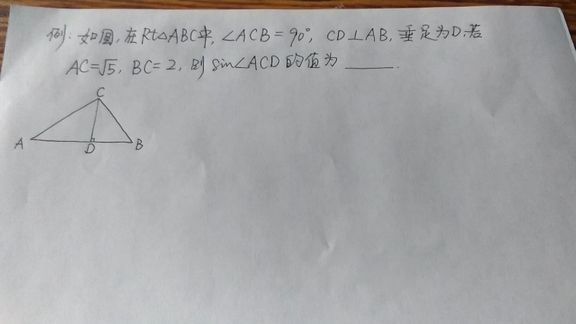 例:如图,在Rt△ABC中,∠ACB=90°,CD⊥AB,垂足为D,若
AC=√5,BC=2,则sin∠ACD的值为____.
C
A
D
B